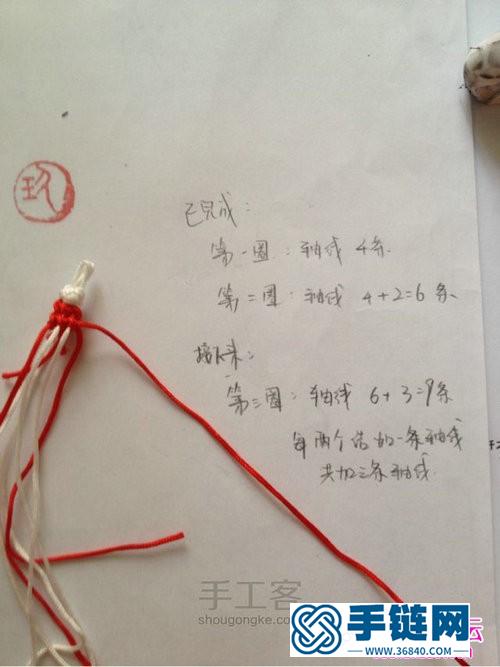 玖
已完成：
第一圈：轴线 4条
第二圈：轴线 4+2=6 条
接下来：
第三圈：轴线 6+3=9条
每两个结加一条轴线
共加三条轴线
手工客
shougongke.com
手链网
www.36840.com
坛